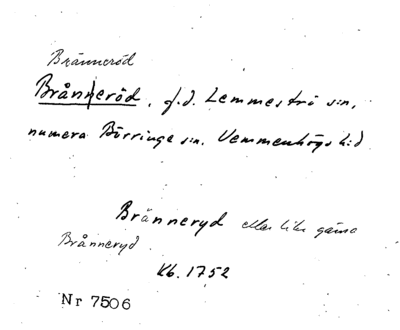 Bränneröd
Brånneröd, f.d. Lemmeströ s:n,
numera Börringe s:n. Vemmenhögs h:d
Bränneryd eller lika gärna
Brånneryd
Kb. 1752
Nr 7506